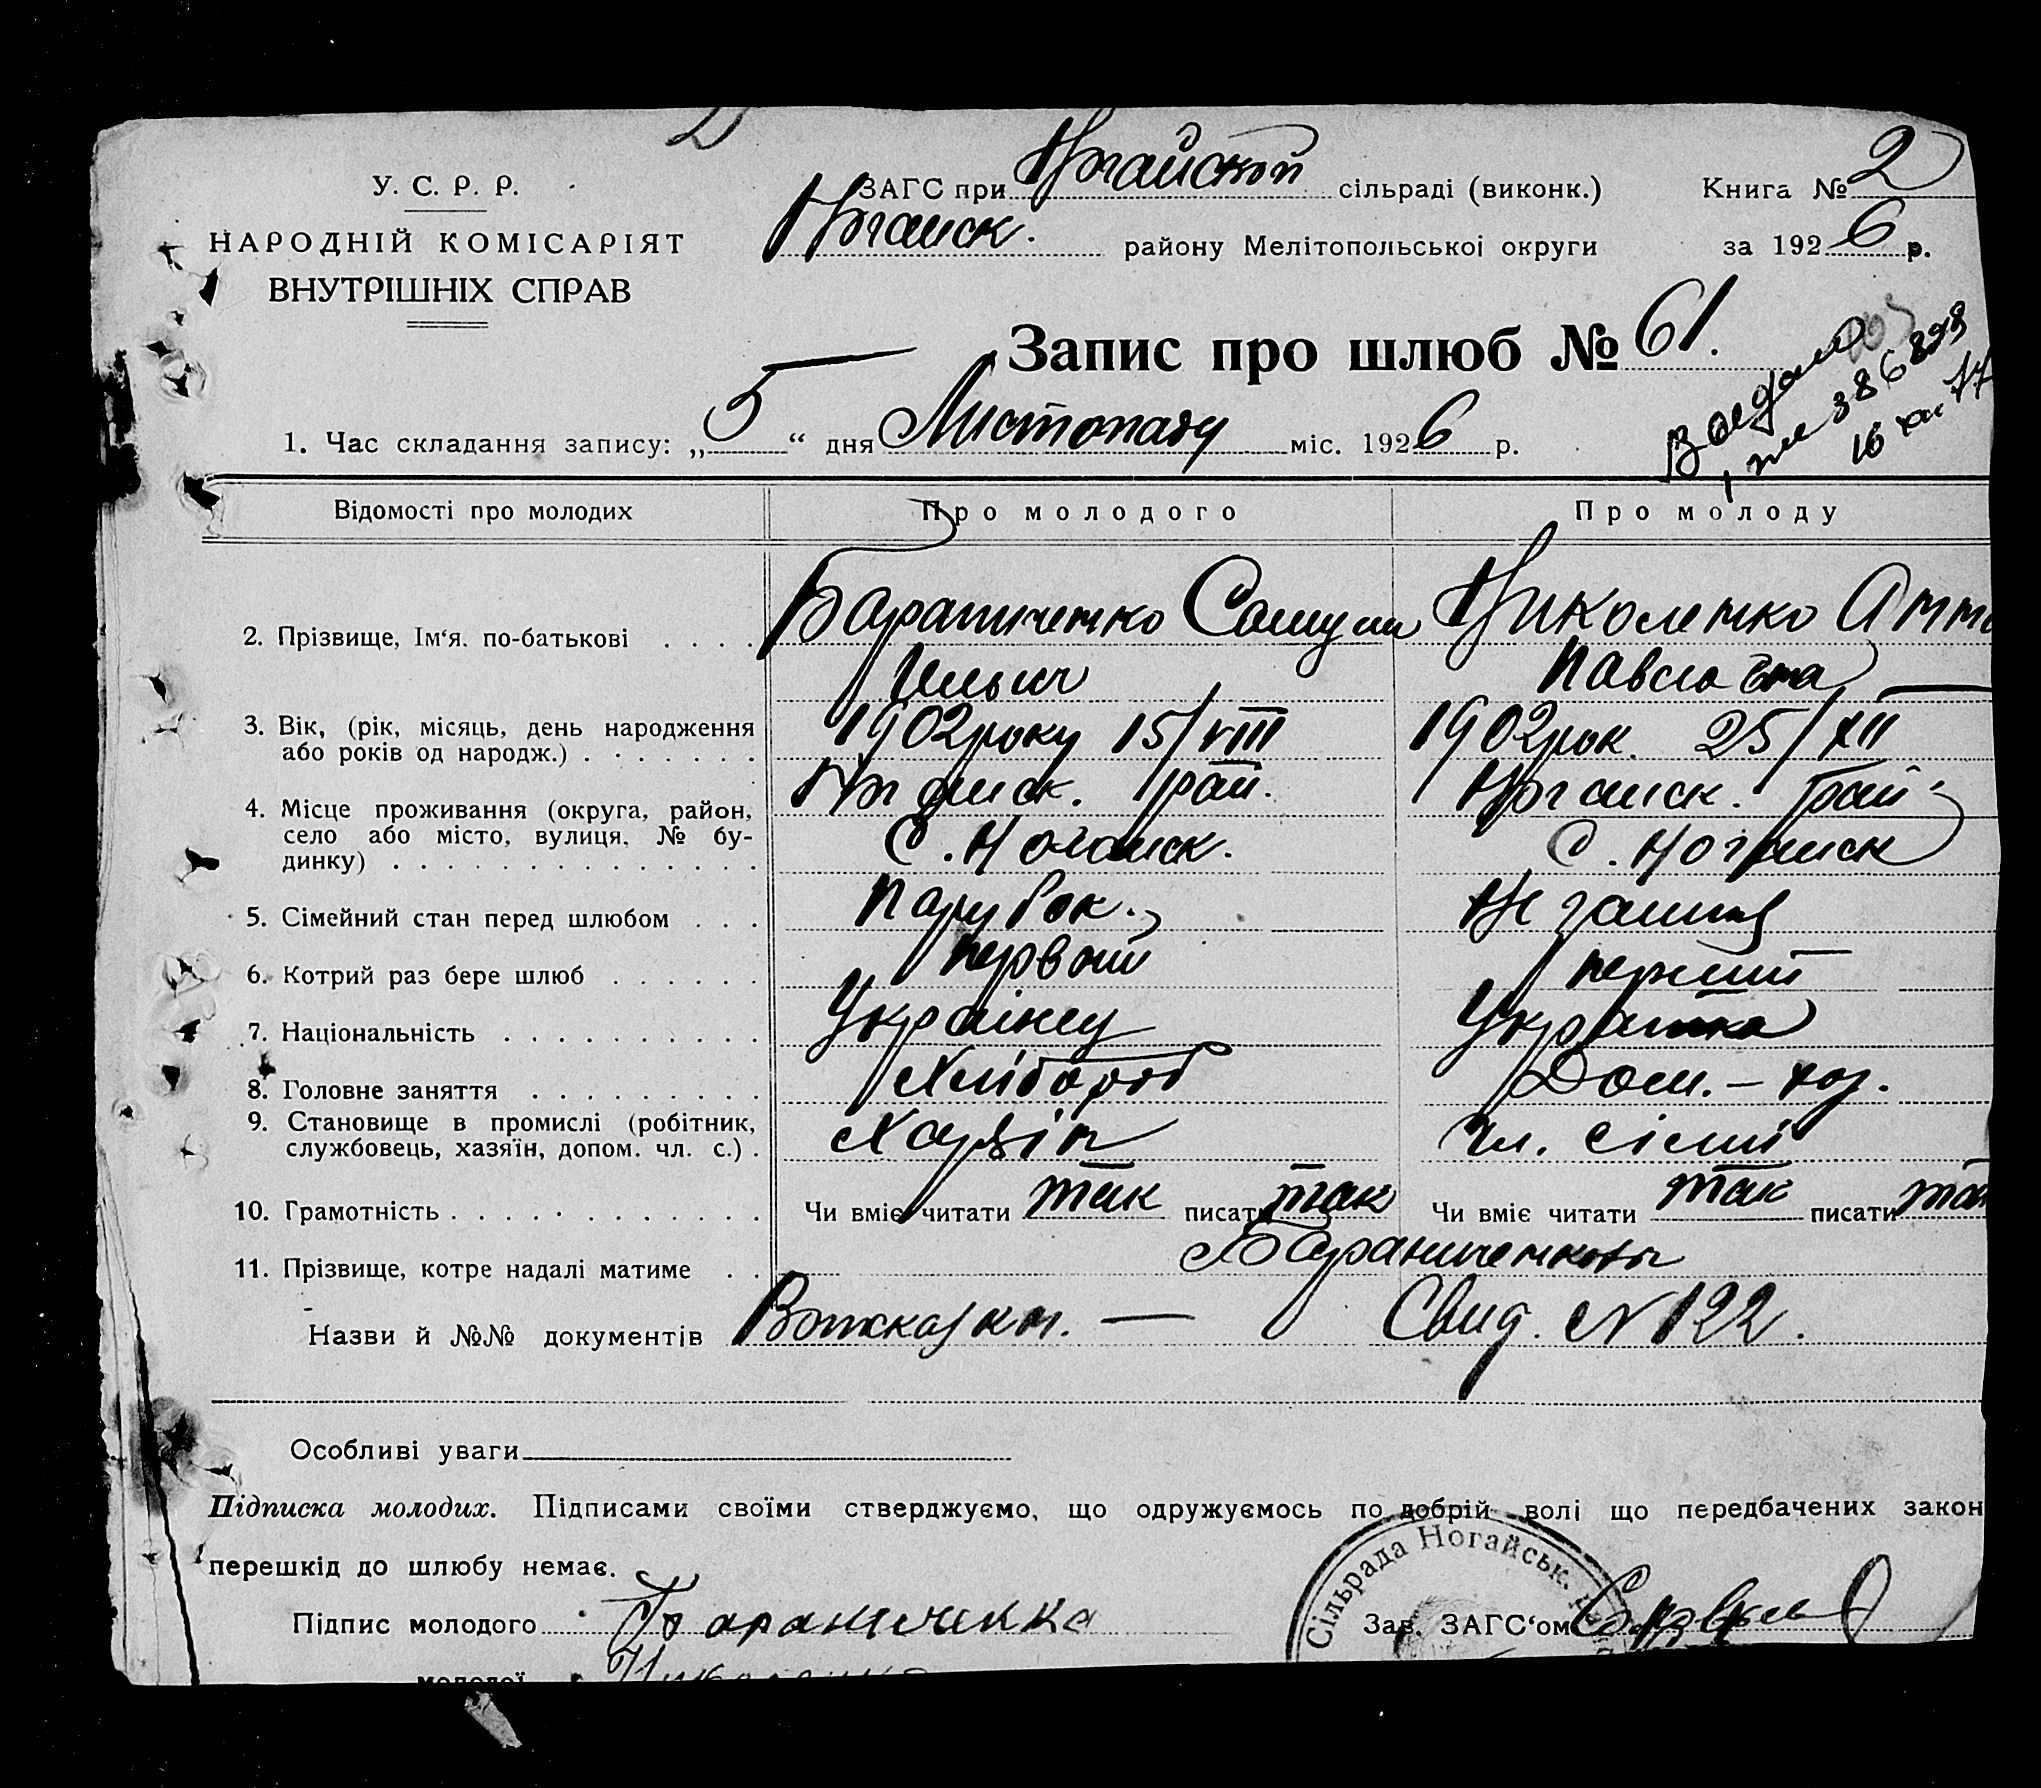 У. С. Р. Р.
НАРОДНІЙ КОМІСАРІЯТ
ВНУТРІШНІХ СПРАВ
ЗАГС при Ногайской сільраді (виконк.) Книга № 2
Ногайск. району Мелітопольської округи за 1926 р.
Запис про шлюб № 61.
1. Час складання запису: „5“ дня Листопаду міс. 1926 р.
386898
16
Відомості про молодих Про молодого Про молоду
2. Прізвище, Ім‘я. по-батькові . . . . Бараниченко Самуил Николенко Анна
Ильич Павловна
3. Вік, (рік, місяць, день народження 1902 року 15/VIII 1902 рок. 25/XII
або років од народж.) . . . . . . .
4. Місце проживання (округа, район, Ногайск. рай. Ногайск. рай.
село або місто, вулиця, № бу- С. Ногайск. С. Ногайск
динку) . . . . . . . . . . . . . .
5. Сімейний стан перед шлюбом . . . Парубок.
6. Котрий раз бере шлюб . . . . . . первый перший
7. Національність . . . . . . . . . . Українец Українка
8. Головне заняття . . . . . . . . . Хлібороб Дом. – хоз.
9. Становище в промислі (робітник, Хазяїн чл. сімї
службовець, хазяїн, допом. чл. с.) .
10. Грамотність . . . . . . . . . . . . Чи вміє читати так писати так Чи вміє читати так писати так
11. Прізвище, котре надалі матиме . . Бараниченковы
Назви й №№ документів — Свид. № 122.
Особливі уваги
Підписка молодих. Підписами своїми стверджуємо, що одружуємось по добрій волі що передбачених закон
перешкід до шлюбу немає.
Сільрада Ногайськ.
Підпис молодого Бараниченко Зав. ЗАГС‘ом
молодої Николенко